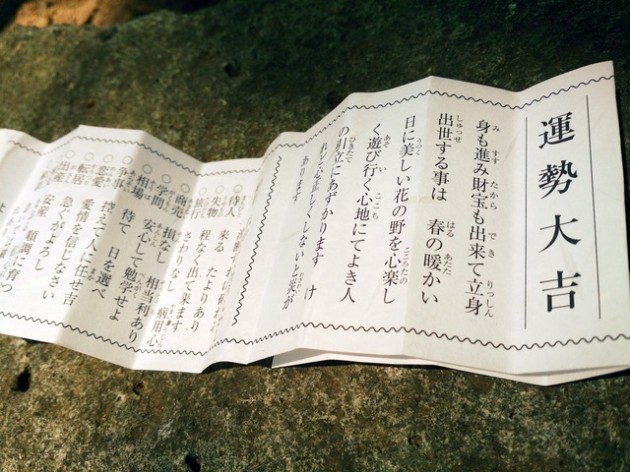 運勢大吉
身も進み財宝も出来て立身
出世する事は　春の暖かい
日に美しい花の野を心楽し
く遊び行く心地にてよき人
の引立にあずかります　け
れど心正しくしないと災が
あります
○待人　来る　たよりあり
○失物　出て来ます
○旅行　さわりなし
○商売　損なし　相当利あり
○学問　安心して勉学せよ
○相場　待て　日を選べ
○争事　控えて人に任せ吉
○恋愛　愛情を信じなさい
○転居　急ぐがよろし
○出産　安産　順調に育つ